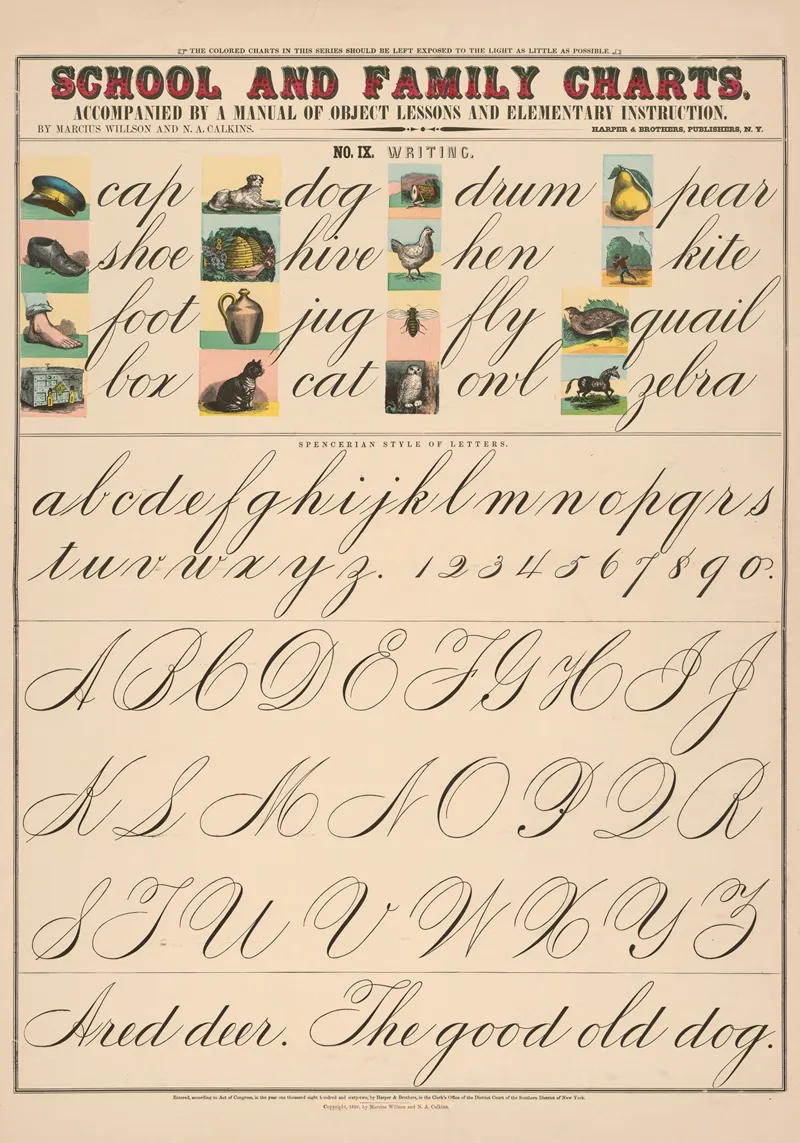 THE COLORED CHARTS IN THIS SERIES SHOULD BE LEFT EXPOSED TO THE LIGHT AS LITTLE AS POSSIBLE.
SCHOOL AND FAMILY CHARTS.
ACCOMPANIED BY A MANUAL OF OBJECT LESSONS AND ELEMENTARY INSTRUCTION.
BY MARCIUS WILLSON AND N. A. CALKINS. HARPER & BROTHERS, PUBLISHERS, N. Y.
NO. IX. WRITING.
cap dog drum pear
shoe hive hen kite
foot jug fly quail
box cat owl zebra
SPENCERIAN STYLE OF LETTERS.
a b c d e f g h i j k l m n o p q r s
t u v w x y z. 1 2 3 4 5 6 7 8 9 0.
A B C D E F G H I J
K L M N O P Q R
S T U V W X Y Z
A red deer. The good old dog.
Entered, according to Act of Congress, in the year one thousand eight hundred and sixty-two, by Harper & Brothers, in the Clerk's Office of the District Court of the Southern District of New York.
Copyright, 1890, by Marcius Willson and N. A. Calkins.